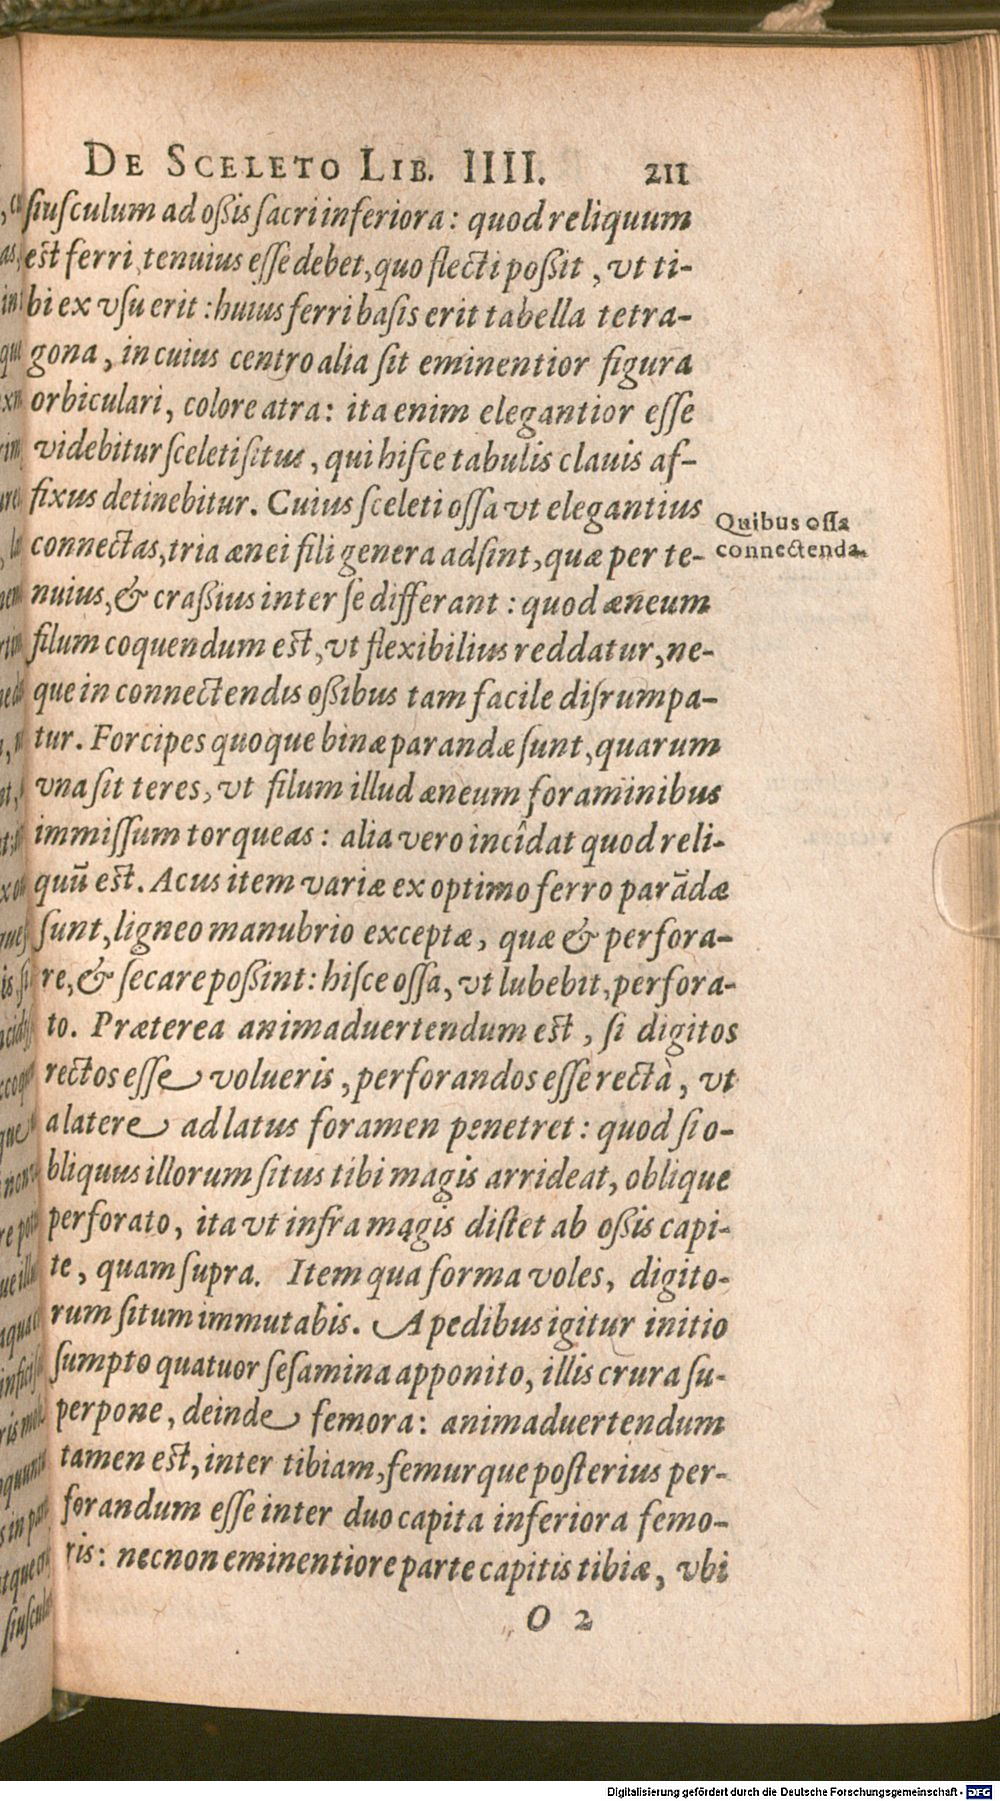 DE SCELETO LIB. IIII. 211
siusculum ad oßis sacri inferiora: quod reliquum
est ferri tenuius esse debet, quo flecti poßit, vt ti-
bi ex vsu erit: huius ferri basis erit tabella tetra-
gona, in cuius centro alia sit eminentior figura
orbiculari, colore atra: ita enim elegantior esse
videbitur sceleti situs, qui hisce tabulis clauis af-
fixus detinebitur. Cuius sceleti ossa vt elegantius
Quibus ossa
connectenda.
connectas, tria ænei fili genera adsint, quæ per te-
nuius, & craßius inter se differant: quod æneum
filum coquendum est, vt flexibilius reddatur, ne-
que in connectendis oßibus tam facile disrumpa-
tur. Forcipes quoque binæ parandæ sunt, quarum
vna sit teres, vt filum illud æneum foraminibus
immissum torqueas: alia vero incîdat quod reli-
quũ est. Acus item variæ ex optimo ferro parãdæ
sunt, ligneo manubrio exceptæ, quæ & perfora-
re, & secare poßint: hisce ossa, vt lubebit, perfora-
to. Præterea animaduertendum est, si digitos
rectos esse volueris, perforandos esse rectà, vt
a latere ad latus foramen penetret: quod si o-
bliquus illorum situs tibi magis arrideat, oblique
perforato, ita vt infra magis distet ab oßis capi-
te, quam supra. Item qua forma voles, digito-
rum situm immutabis. A pedibus igitur initio
sumpto quatuor sesamina apponito, illis crura su-
perpone, deinde femora: animaduertendum
tamen est, inter tibiam, femurque posterius per-
forandum esse inter duo capita inferiora femo-
ris: necnon eminentiore parte capitis tibiæ, vbi
O 2
Digitalisierung gefördert durch die Deutsche Forschungsgemeinschaft - DFG